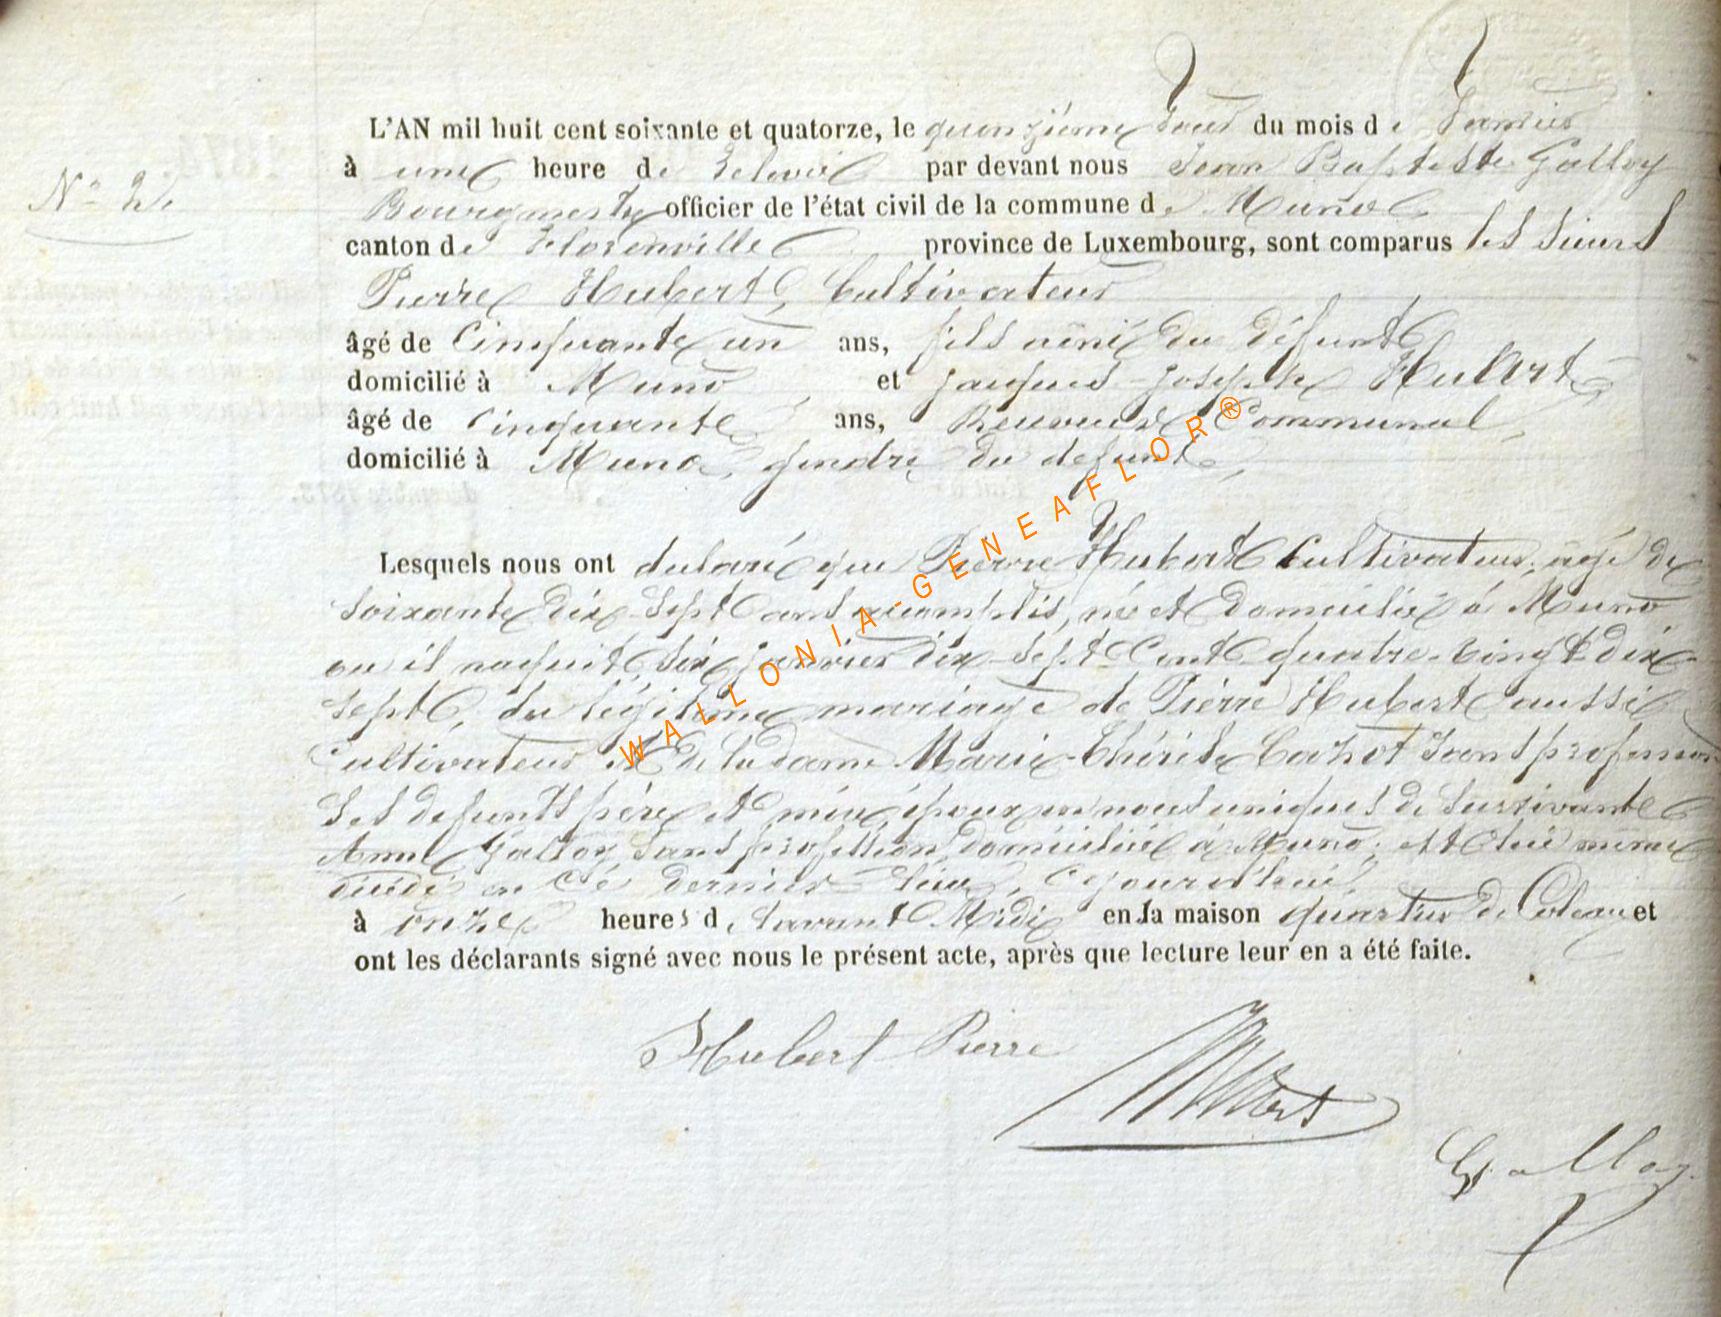 L'AN mil huit cent soixante et quatorze, le quinzième Jour du mois de Janvier
N° 2.
à une heure de relevée par devant nous Jean Baptiste Galloy
Bourgmestre officier de l'état civil de la commune de Muno
canton de Florenville province de Luxembourg, sont comparus les sieurs
Pierre Hubert, Cultivateur
âgé de Cinquante un ans, fils aîné du défunt
domicilié à Muno, et Jacques Joseph Hubert,
âgé de Cinquante ans, Receveur Communal,
domicilié à Muno, gendre du défunt,
Lesquels nous ont déclaré que Pierre Hubert Cultivateur, âgé de
soixante dix sept ans accomplis, né et domicilié à Muno
ou il naquit, six janvier dix sept Cent quatre-vingt dix
sept, du légitime mariage de Pierre Hubert aussi
Cultivateur et de la dame Marie Thérèse sans profession
ses defunts père et mère, époux en noces uniques de survivante
Anne Galloy sans profession domiciliée à Muno, est
décédé en ce dernier lieu, cejourd'hui,
à onze heures d, l'avant Midi en la maison quartier de et
ont les déclarants signé avec nous le présent acte, après que lecture leur en a été faite.
Hubert Pierre
Hubert
Galloy
WALLONIA-GENEAFLOR®